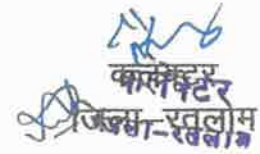 कलेक्टर
जिला-रतलाम